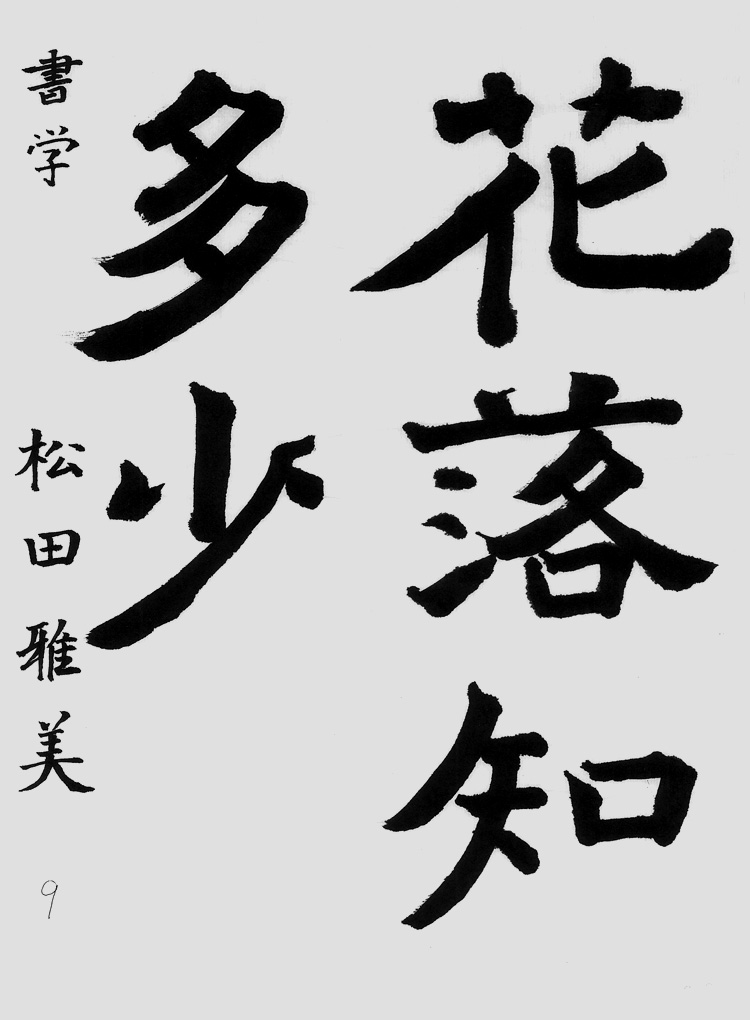 花落知
多少
書学 松田雅美
9